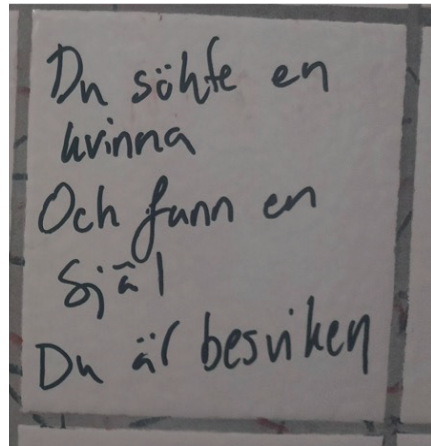 Du sökte en
kvinna
Och fann en
själ
Du är besviken